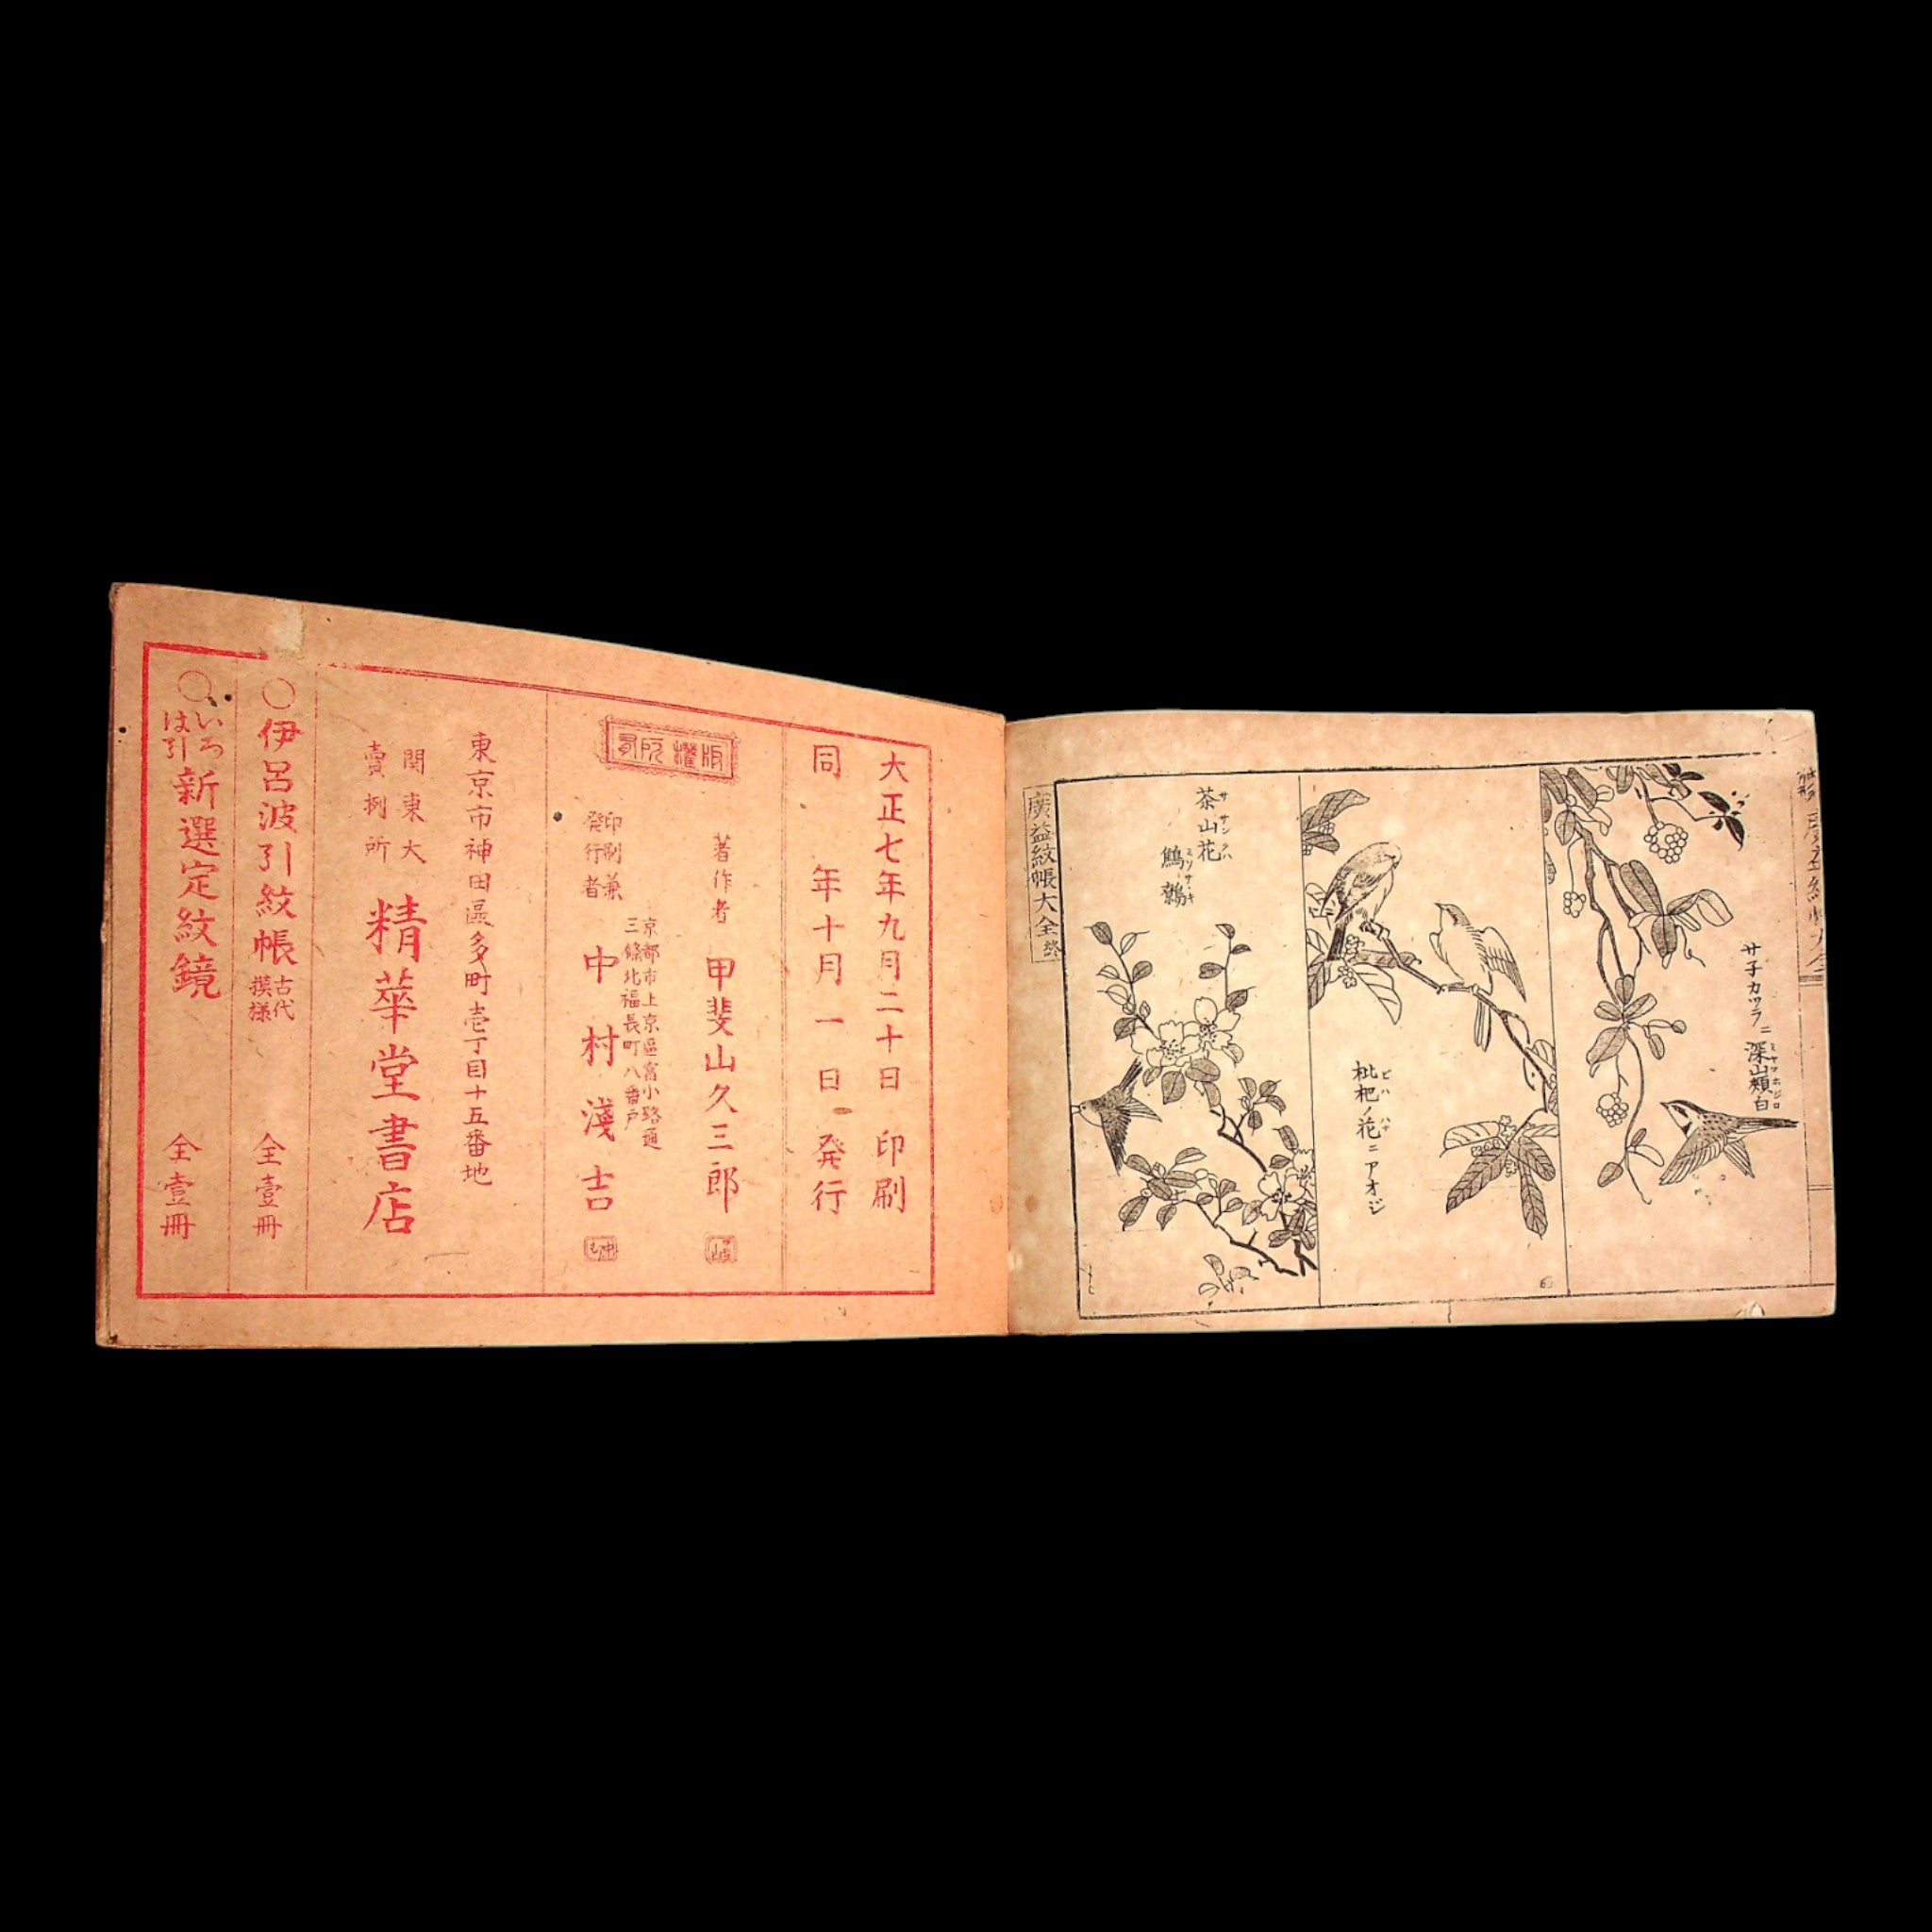 廣益紋帳大全
サ子カツラニ深山頬白
ミヤマホジロ
枇杷ノ花ニアオジ
ビハ ハナ
茶山花
サザンクハ
鷦鷯
ミソサヾキ
廣益紋帳大全 終
大正七年九月二十日印刷
同年十月一日発行
版權所有
著作者 甲斐山久三郎
京都市上京區富小路通
三條北福長町八番戸
印刷兼
発行者 中村淺吉
東京市神田區多町壱丁目十五番地
関東大
賣捌所 精華堂書店
○伊呂波引紋帳 古代模様 全壹冊
○いろは引 新選定紋鏡 全壹冊